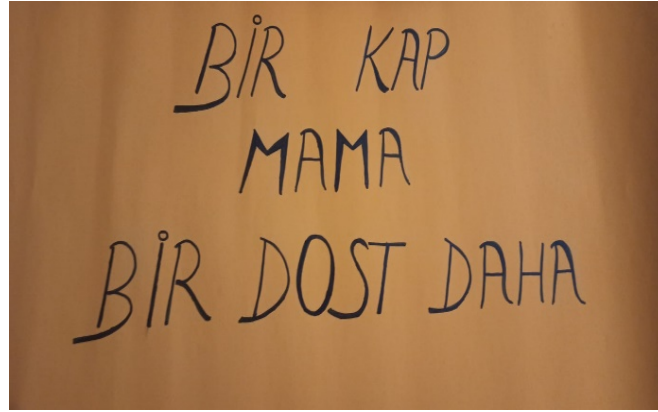 BİR KAP
MAMA
BİR DOST DAHA